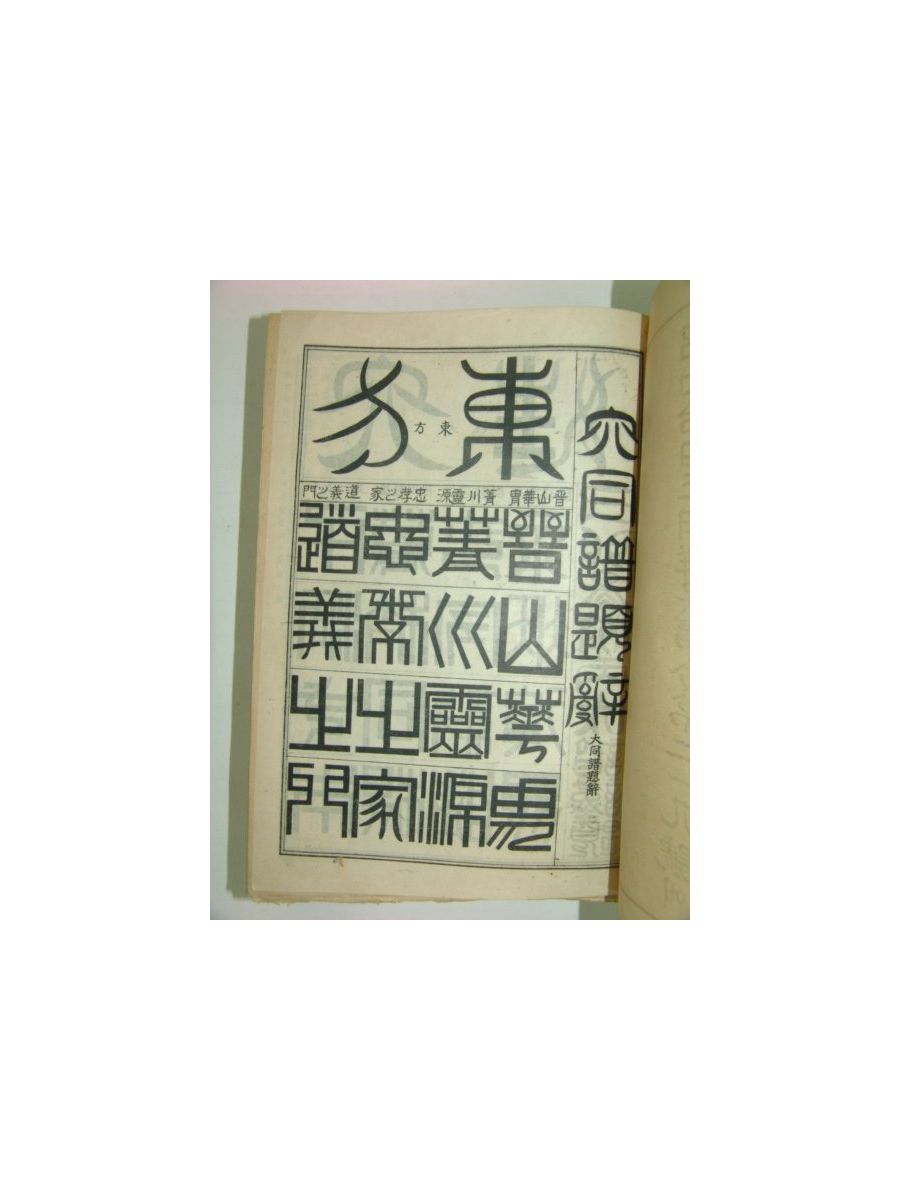 大同譜題辭
大同譜題辭
東方
東方
晉山華冑 菁川靈源 忠孝之家 道義之門
晉山華冑
菁川靈源
忠孝之家
道義之門